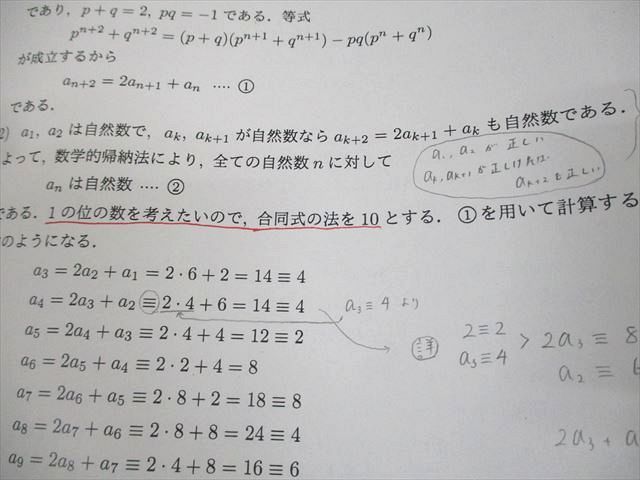 であり，p + q = 2, pq = −1 である．等式
pⁿ⁺² + qⁿ⁺² = (p + q)(pⁿ⁺¹ + qⁿ⁺¹) − pq(pⁿ + qⁿ)
が成立するから
aₙ₊₂ = 2aₙ₊₁ + aₙ ････ ①
である．
2) a₁, a₂ は自然数で，aₖ, aₖ₊₁ が自然数なら aₖ₊₂ = 2aₖ₊₁ + aₖ も自然数である．
よって，数学的帰納法により，全ての自然数 n に対して
a₁, a₂ が 正しい
aₖ, aₖ₊₁ が 正しければ
aₖ₊₂ も 正しい
aₙ は自然数 ････ ②
である．1 の位の数を考えたいので，合同式の法を 10 とする．①を用いて計算する
のようになる．
a₃ = 2a₂ + a₁ = 2・6 + 2 = 14 ≡ 4
a₄ = 2a₃ + a₂ ≡ 2・4 + 6 = 14 ≡ 4
a₃ ≡ 4 より
a₅ = 2a₄ + a₃ ≡ 2・4 + 4 = 12 ≡ 2
詳
2 ≡ 2
a₃ ≡ 4
> 2a₃ ≡ 8
a₆ = 2a₅ + a₄ ≡ 2・2 + 4 = 8
a₂ ≡ 6
a₇ = 2a₆ + a₅ ≡ 2・8 + 2 = 18 ≡ 8
a₈ = 2a₇ + a₆ ≡ 2・8 + 8 = 24 ≡ 4
2a₃ + a
a₉ = 2a₈ + a₇ ≡ 2・4 + 8 = 16 ≡ 6